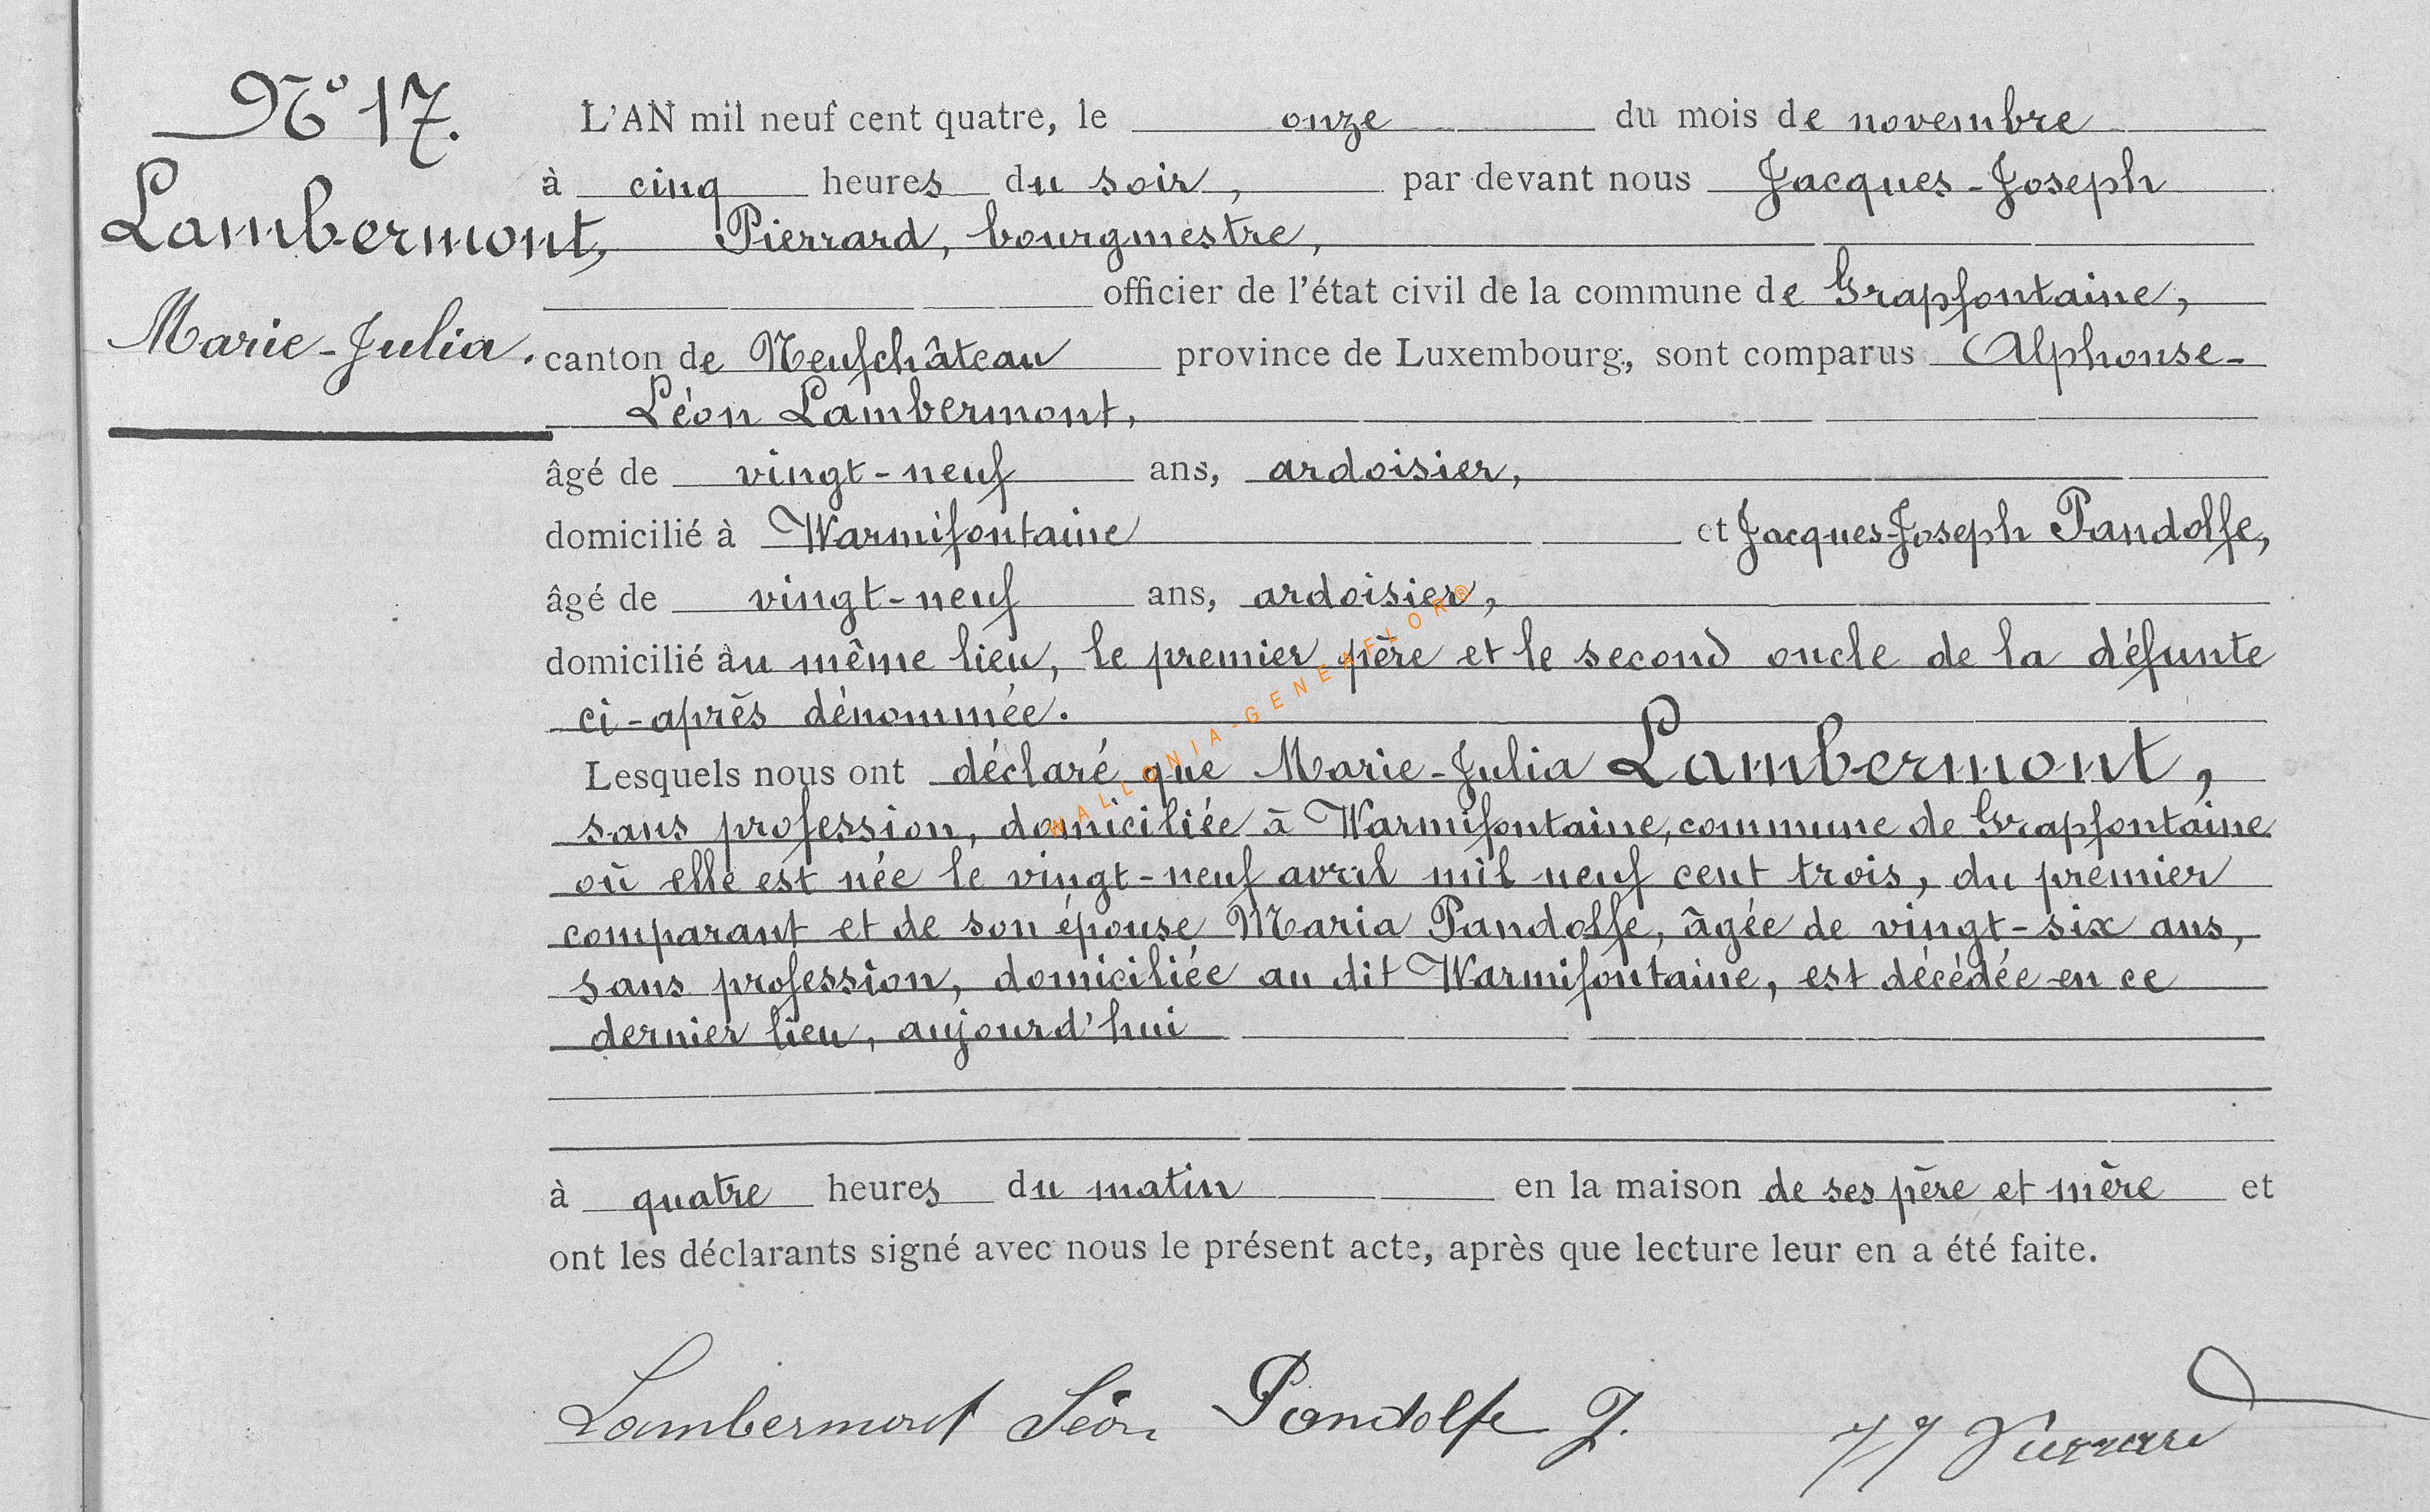 N° 17.
Lambermont,
Marie-Julia.
L'AN mil neuf cent quatre, le onze du mois de novembre
à cinq heures du soir, par devant nous Jacques-Joseph
Pierrard, bourgmestre,
officier de l'état civil de la commune de Grapfontaine,
canton de Neufchâteau province de Luxembourg, sont comparus Alphonse-
Léon Lambermont,
âgé de vingt-neuf ans, ardoisier,
domicilié à Warmifontaine et Jacques-Joseph Pandolfe,
âgé de vingt-neuf ans, ardoisier,
domicilié au même lieu, le premier père et le second oncle de la défunte
ci-après dénommée.
Lesquels nous ont déclaré que Marie-Julia Lambermont,
sans profession, domiciliée à Warmifontaine, commune de Grapfontaine
où elle est née le vingt-neuf avril mil neuf cent trois, du premier
comparant et de son épouse Maria Pandolfe, âgée de vingt-six ans,
sans profession, domiciliée au dit Warmifontaine, est décédée en ce
dernier lieu, aujourd'hui
à quatre heures du matin en la maison de ses père et mère et
ont les déclarants signé avec nous le présent acte, après que lecture leur en a été faite.
Lambermont Léon Pandolfe J. JJ Pierrard
WALLONIA-GENEAFLOR®